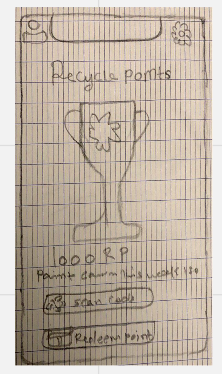 Recycle points
1000 RP
Point earn this week 150
scan code
Redeem point